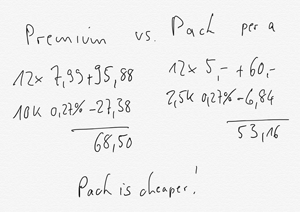 Premium vs. Pach per a
12x 7,99 +95,88
10K 0,27% -27,38
68,50
12x 5,- +60,-
2,5K 0,27% -6,84
53,16
Pach is cheaper!